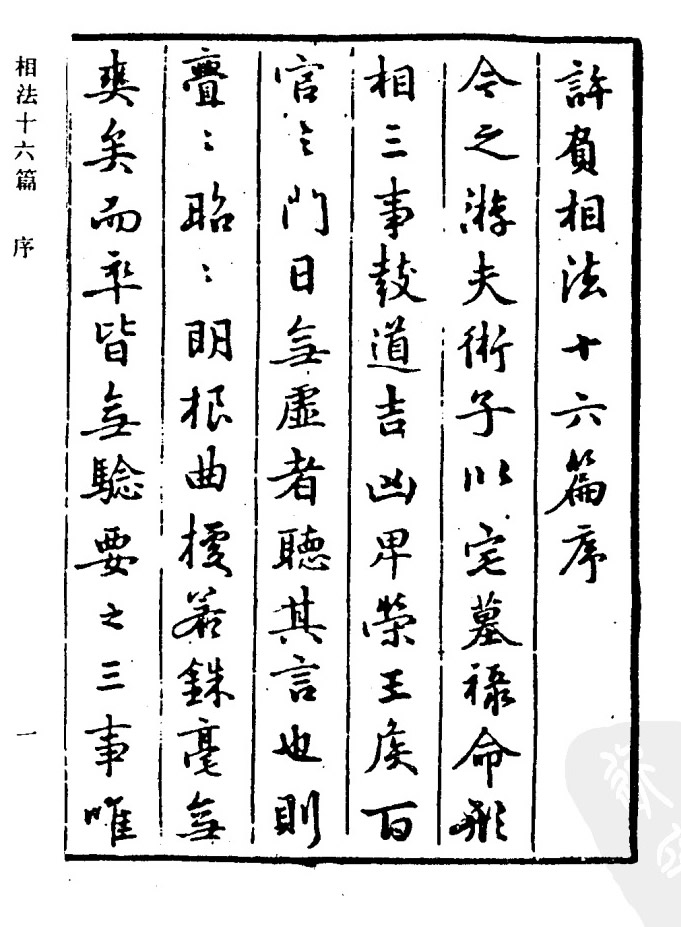 許負相法十六篇序
今之游夫術子以宅墓祿命形
相三事鼓道吉凶卑榮王侯百
官之門日無虛者聽其言也則
亹〻昭〻明根曲㨿若銖毫無
爽矣而率皆無驗要之三事唯
相法十六篇 序
一